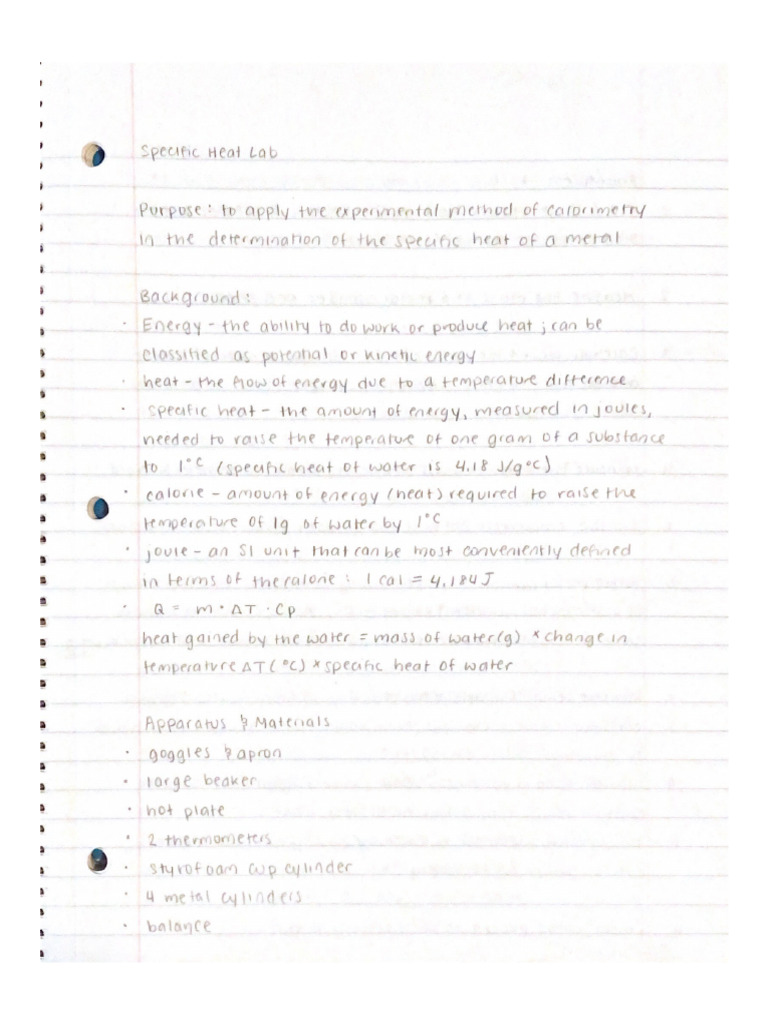 Specific Heat Lab
Purpose: to apply the experimental method of calorimetry
in the determination of the specific heat of a metal
Background:
· Energy - the ability to do work or produce heat; can be
classified as potential or kinetic energy
· heat - the flow of energy due to a temperature difference
· specific heat - the amount of energy, measured in joules,
needed to raise the temperature of one gram of a substance
to 1°C (specific heat of water is 4.18 J/g°C)
· calorie - amount of energy (heat) required to raise the
temperature of 1g of water by 1°C
· joule - an SI unit that can be most conveniently defined
in terms of the calorie: 1 cal = 4.184 J
· Q = m · ΔT · Cp
heat gained by the water = mass of water(g) * change in
temperature ΔT(°C) * specific heat of water
Apparatus & Materials
· goggles & apron
· large beaker
· hot plate
· 2 thermometers
· styrofoam cup cylinder
· 4 metal cylinders
· balance